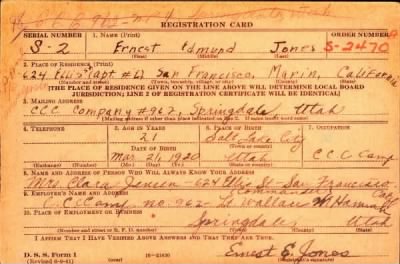 REGISTRATION CARD
SERIAL NUMBER 1. NAME (Print) ORDER NUMBER
S-2 Ernest Edmund Jones S-2470
(First) (Middle) (Last)
2. PLACE OF RESIDENCE (Print)
624 Ellis apt # San Francisco, Marin, California
[THE PLACE OF RESIDENCE GIVEN ON THE LINE ABOVE WILL DETERMINE LOCAL BOARD
JURISDICTION; LINE 2 OF REGISTRATION CERTIFICATE WILL BE IDENTICAL]
3. MAILING ADDRESS
CCC Company #962, Springdale Utah
[Mailing address if other than place indicated on line 2. If same insert word same]
4. TELEPHONE 5. AGE IN YEARS 6. PLACE OF BIRTH 7. OCCUPATION
21 Salt Lake City
DATE OF BIRTH
Mar. 21, 1920 Utah CCC Camp
(Exchange) (Number) (Mo.) (Day) (Yr.) (State or country)
8. NAME AND ADDRESS OF PERSON WHO WILL ALWAYS KNOW YOUR ADDRESS
Mrs. Clara Jensen - 624 Ellis St. San Francisco
9. EMPLOYER'S NAME AND ADDRESS
CCCamp no. 962- Lt Wallace M Hannah
10. PLACE OF EMPLOYMENT OR BUSINESS
Springdale, Utah
(Number and street or R. F. D. number) (Town) (County) (State)
I AFFIRM THAT I HAVE VERIFIED ABOVE ANSWERS AND THAT THEY ARE TRUE.
D. S. S. Form 1 Ernest E. Jones
(Revised 6-9-41) 16-21630 (Registrant's signature)